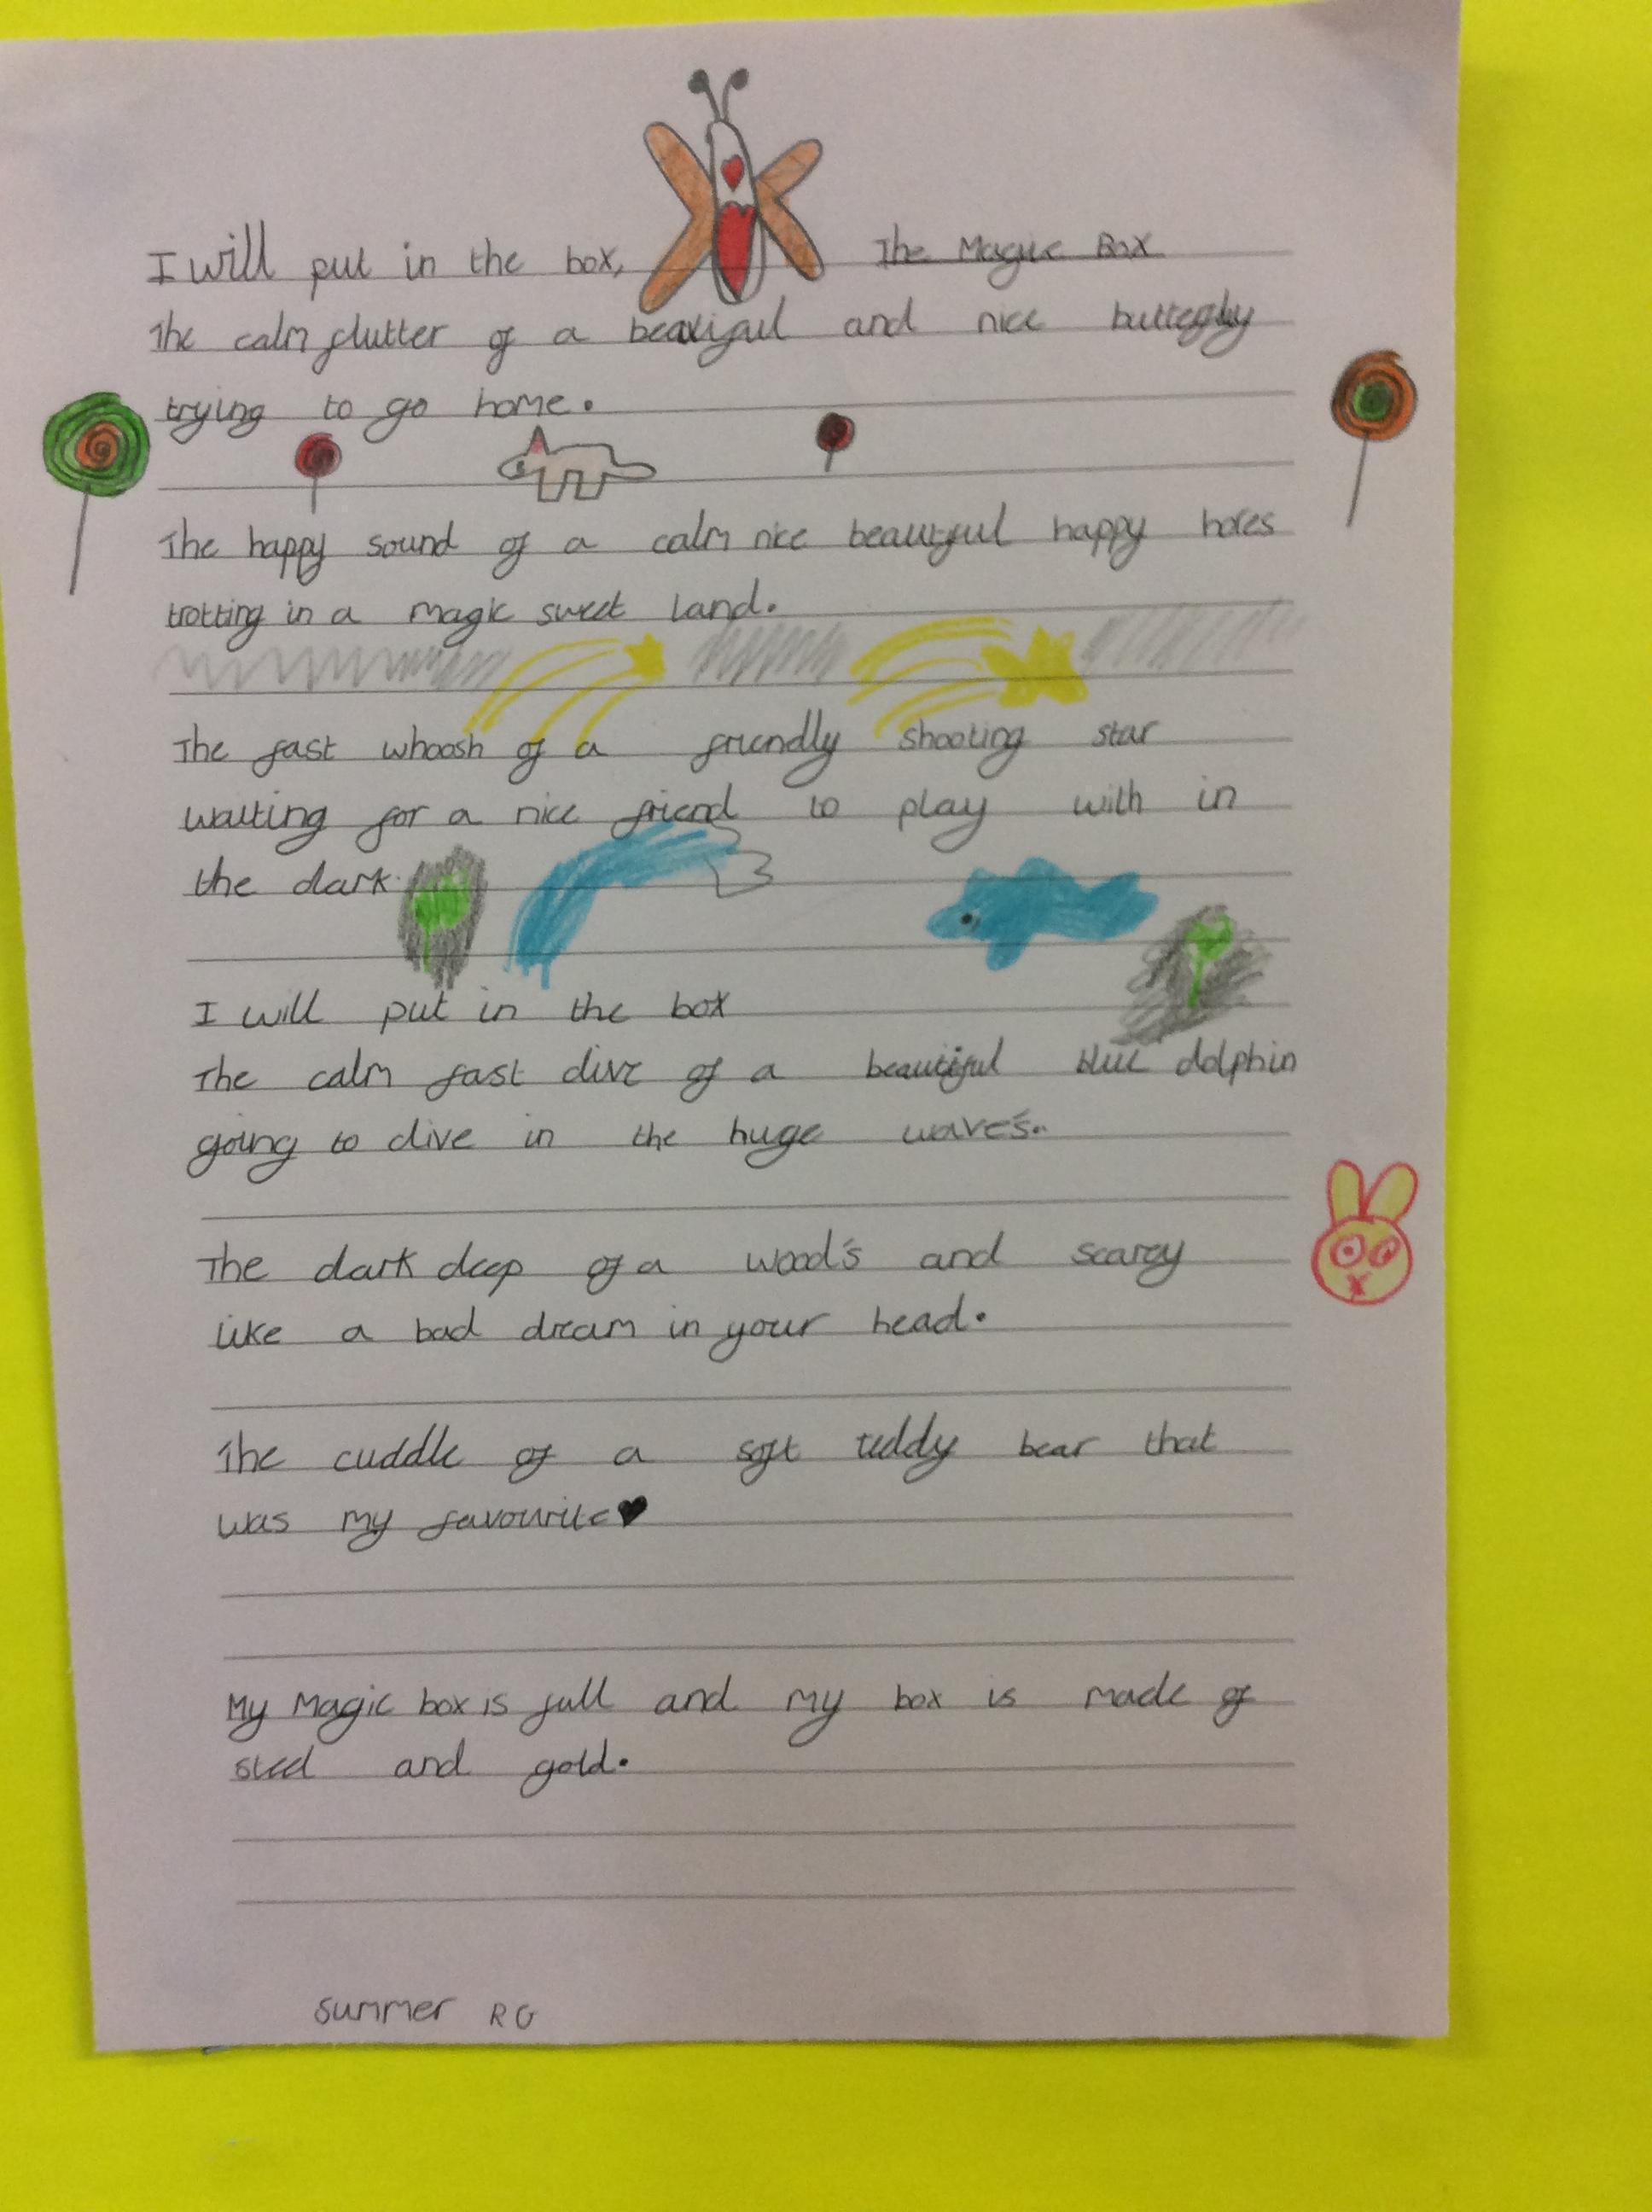 I will put in the box, The Magic Box
The calm flutter of a beautiful and nice butterfly
trying to go home.
The happy sound of a calm nice beautyful happy hores
trotting in a magic sweet land.
The fast whoosh of a friendly shooting star
waiting for a nice friend to play with in
the dark.
I will put in the box
The calm fast dive of a beautiful blue dolphin
going to dive in the huge waves.
The dark deep of a wood's and scarey
like a bad dream in your head.
The cuddle of a soft teddy bear that
was my favourite
My Magic box is full and my box is made of
steel and gold.
summer RG